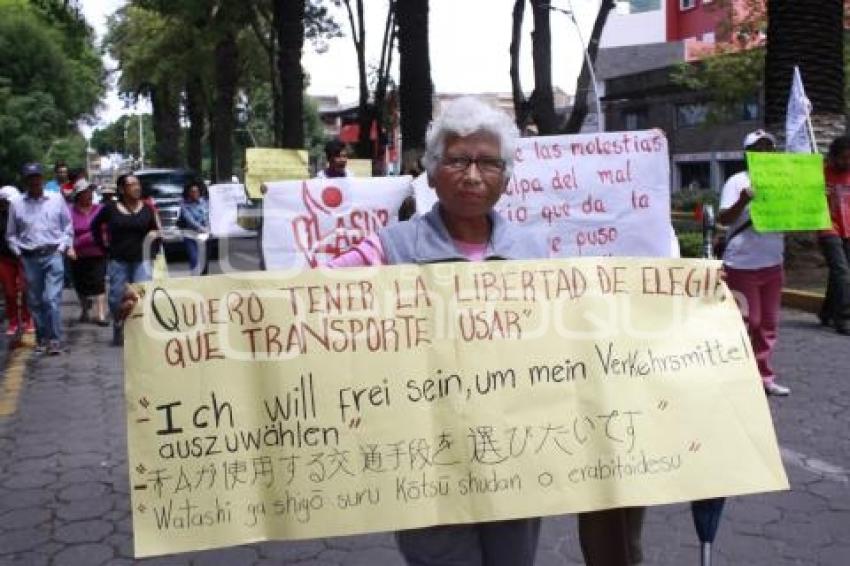 las molestias
culpa del mal
que da la
puso
"QUIERO TENER LA LIBERTAD DE ELEGIR
QUE TRANSPORTE USAR"
"Ich will frei sein, um mein Verkehrsmittel
auszuwählen"
"私ムが使用する交通手段を選びたいです"
"Watashi ga shigō suru Kōtsū shudan o erabitaidesu"